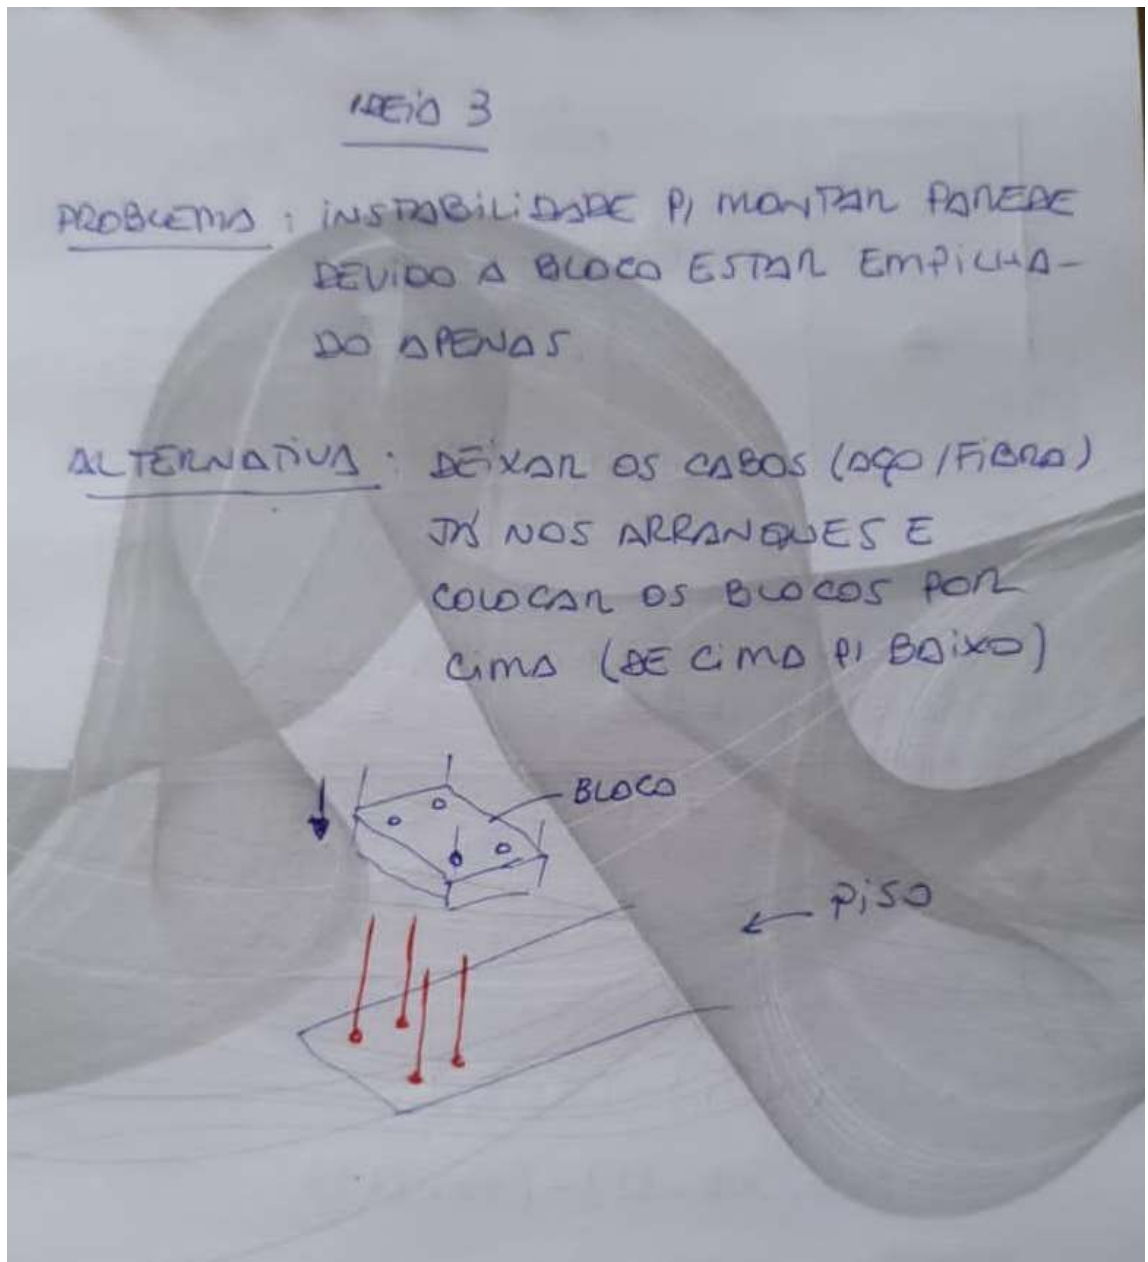 IDEIA 3
PROBLEMA : INSTABILIDADE P/ MONTAR PAREDE
DEVIDO A BLOCO ESTAR EMPILHA-
DO APENAS.
ALTERNATIVA : DEIXAR OS CABOS (AÇO/FIBRA)
JÁ NOS ARRANQUES E
COLOCAR OS BLOCOS POR
CIMA (DE CIMA P/ BAIXO)
BLOCO
PISO